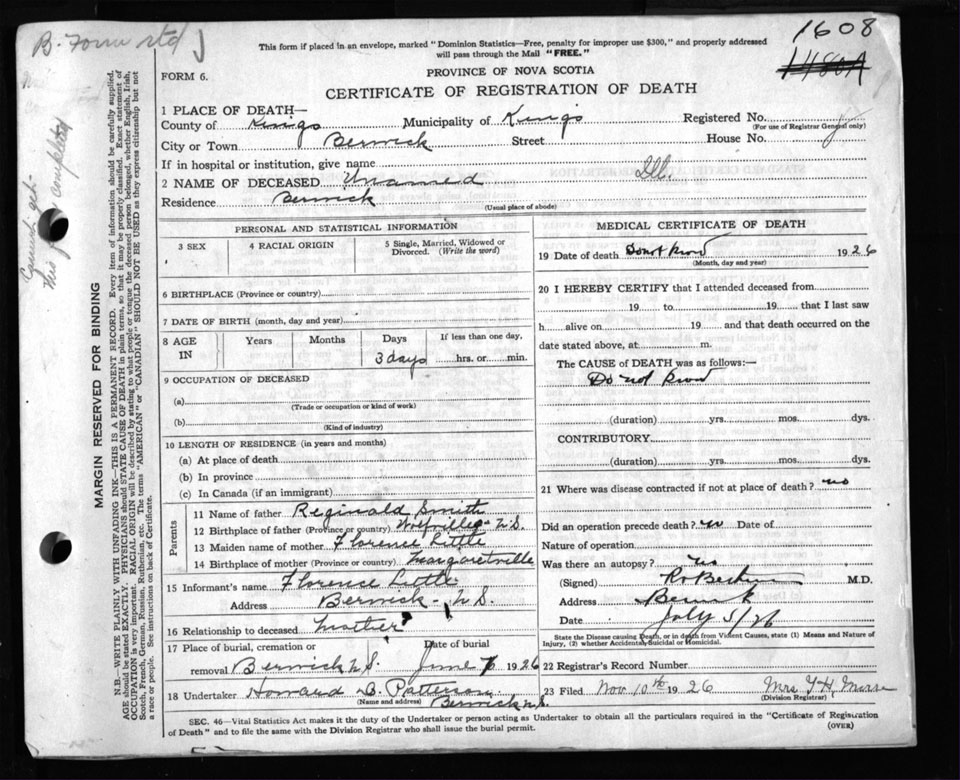 B. Form std
1608
1480A
This form if placed in an envelope, marked "Dominion Statistics—Free, penalty for improper use $300," and properly addressed
will pass through the Mail "FREE."
FORM 6.
PROVINCE OF NOVA SCOTIA
CERTIFICATE OF REGISTRATION OF DEATH
1 PLACE OF DEATH—
County of Kings Municipality of Kings Registered No.
(For use of Registrar General only)
City or Town Berwick Street House No.
If in hospital or institution, give name
Ill.
2 NAME OF DECEASED Unamed
Residence Berwick
(Usual place of abode)
PERSONAL AND STATISTICAL INFORMATION
3 SEX 4 RACIAL ORIGIN 5 Single, Married, Widowed or Divorced. (Write the word)
6 BIRTHPLACE (Province or country)
7 DATE OF BIRTH (month, day and year)
8 AGE IN Years Months Days If less than one day,
3 days hrs. or min.
9 OCCUPATION OF DECEASED
(a)
(Trade or occupation or kind of work)
(b)
(Kind of industry)
10 LENGTH OF RESIDENCE (in years and months)
(a) At place of death
(b) In province
(c) In Canada (if an immigrant)
Parents
11 Name of father Reginald Smith
12 Birthplace of father (Province or country) Wolfville N.S.
13 Maiden name of mother Florence Little
14 Birthplace of mother (Province or country) Margaretville
15 Informant's name Florence Little
Address Berwick N.S.
16 Relationship to deceased Mother
17 Place of burial, cremation or Date of burial
removal Berwick N.S. June 1926
18 Undertaker Howard B. Patterson
(Name and address) Berwick N.S.
MEDICAL CERTIFICATE OF DEATH
19 Date of death Dont know 1926
(Month, day and year)
20 I HEREBY CERTIFY that I attended deceased from
19 to 19 that I last saw
h alive on 19 and that death occurred on the
date stated above, at m.
The CAUSE of DEATH was as follows:—
Do not know
(duration) yrs. mos. dys.
CONTRIBUTORY
(duration) yrs. mos. dys.
21 Where was disease contracted if not at place of death? no
Did an operation precede death? no Date of
Nature of operation
Was there an autopsy? no
(Signed) M.D.
Address Berwick
Date July 5/26
State the Disease causing Death, or in death from Violent Causes, state (1) Means and Nature of
Injury, (2) whether Accidental, Suicidal or Homicidal.
22 Registrar's Record Number
23 Filed Nov 10th 1926 Mrs
(Division Registrar)
SEC. 46—Vital Statistics Act makes it the duty of the Undertaker or person acting as Undertaker to obtain all the particulars required in the "Certificate of Registration
of Death" and to file the same with the Division Registrar who shall issue the burial permit.
(OVER)
MARGIN RESERVED FOR BINDING
N.B.—WRITE PLAINLY WITH UNFADING INK—THIS IS A PERMANENT RECORD. Every item of information should be carefully supplied.
AGE should be stated EXACTLY. PHYSICIANS should STATE CAUSE OF DEATH in plain terms, so that it may be properly classified. Exact statement of
OCCUPATION is very important. RACIAL ORIGIN will be described by stating to what people or tongue the deceased person belonged, whether English, Irish,
Scotch, French, German, Russian, Ruthenian, etc. The terms "AMERICAN" or "CANADIAN" SHOULD NOT BE USED as they express citizenship but not
a race or people. See instructions on back of Certificate.
Cannot get
this completed